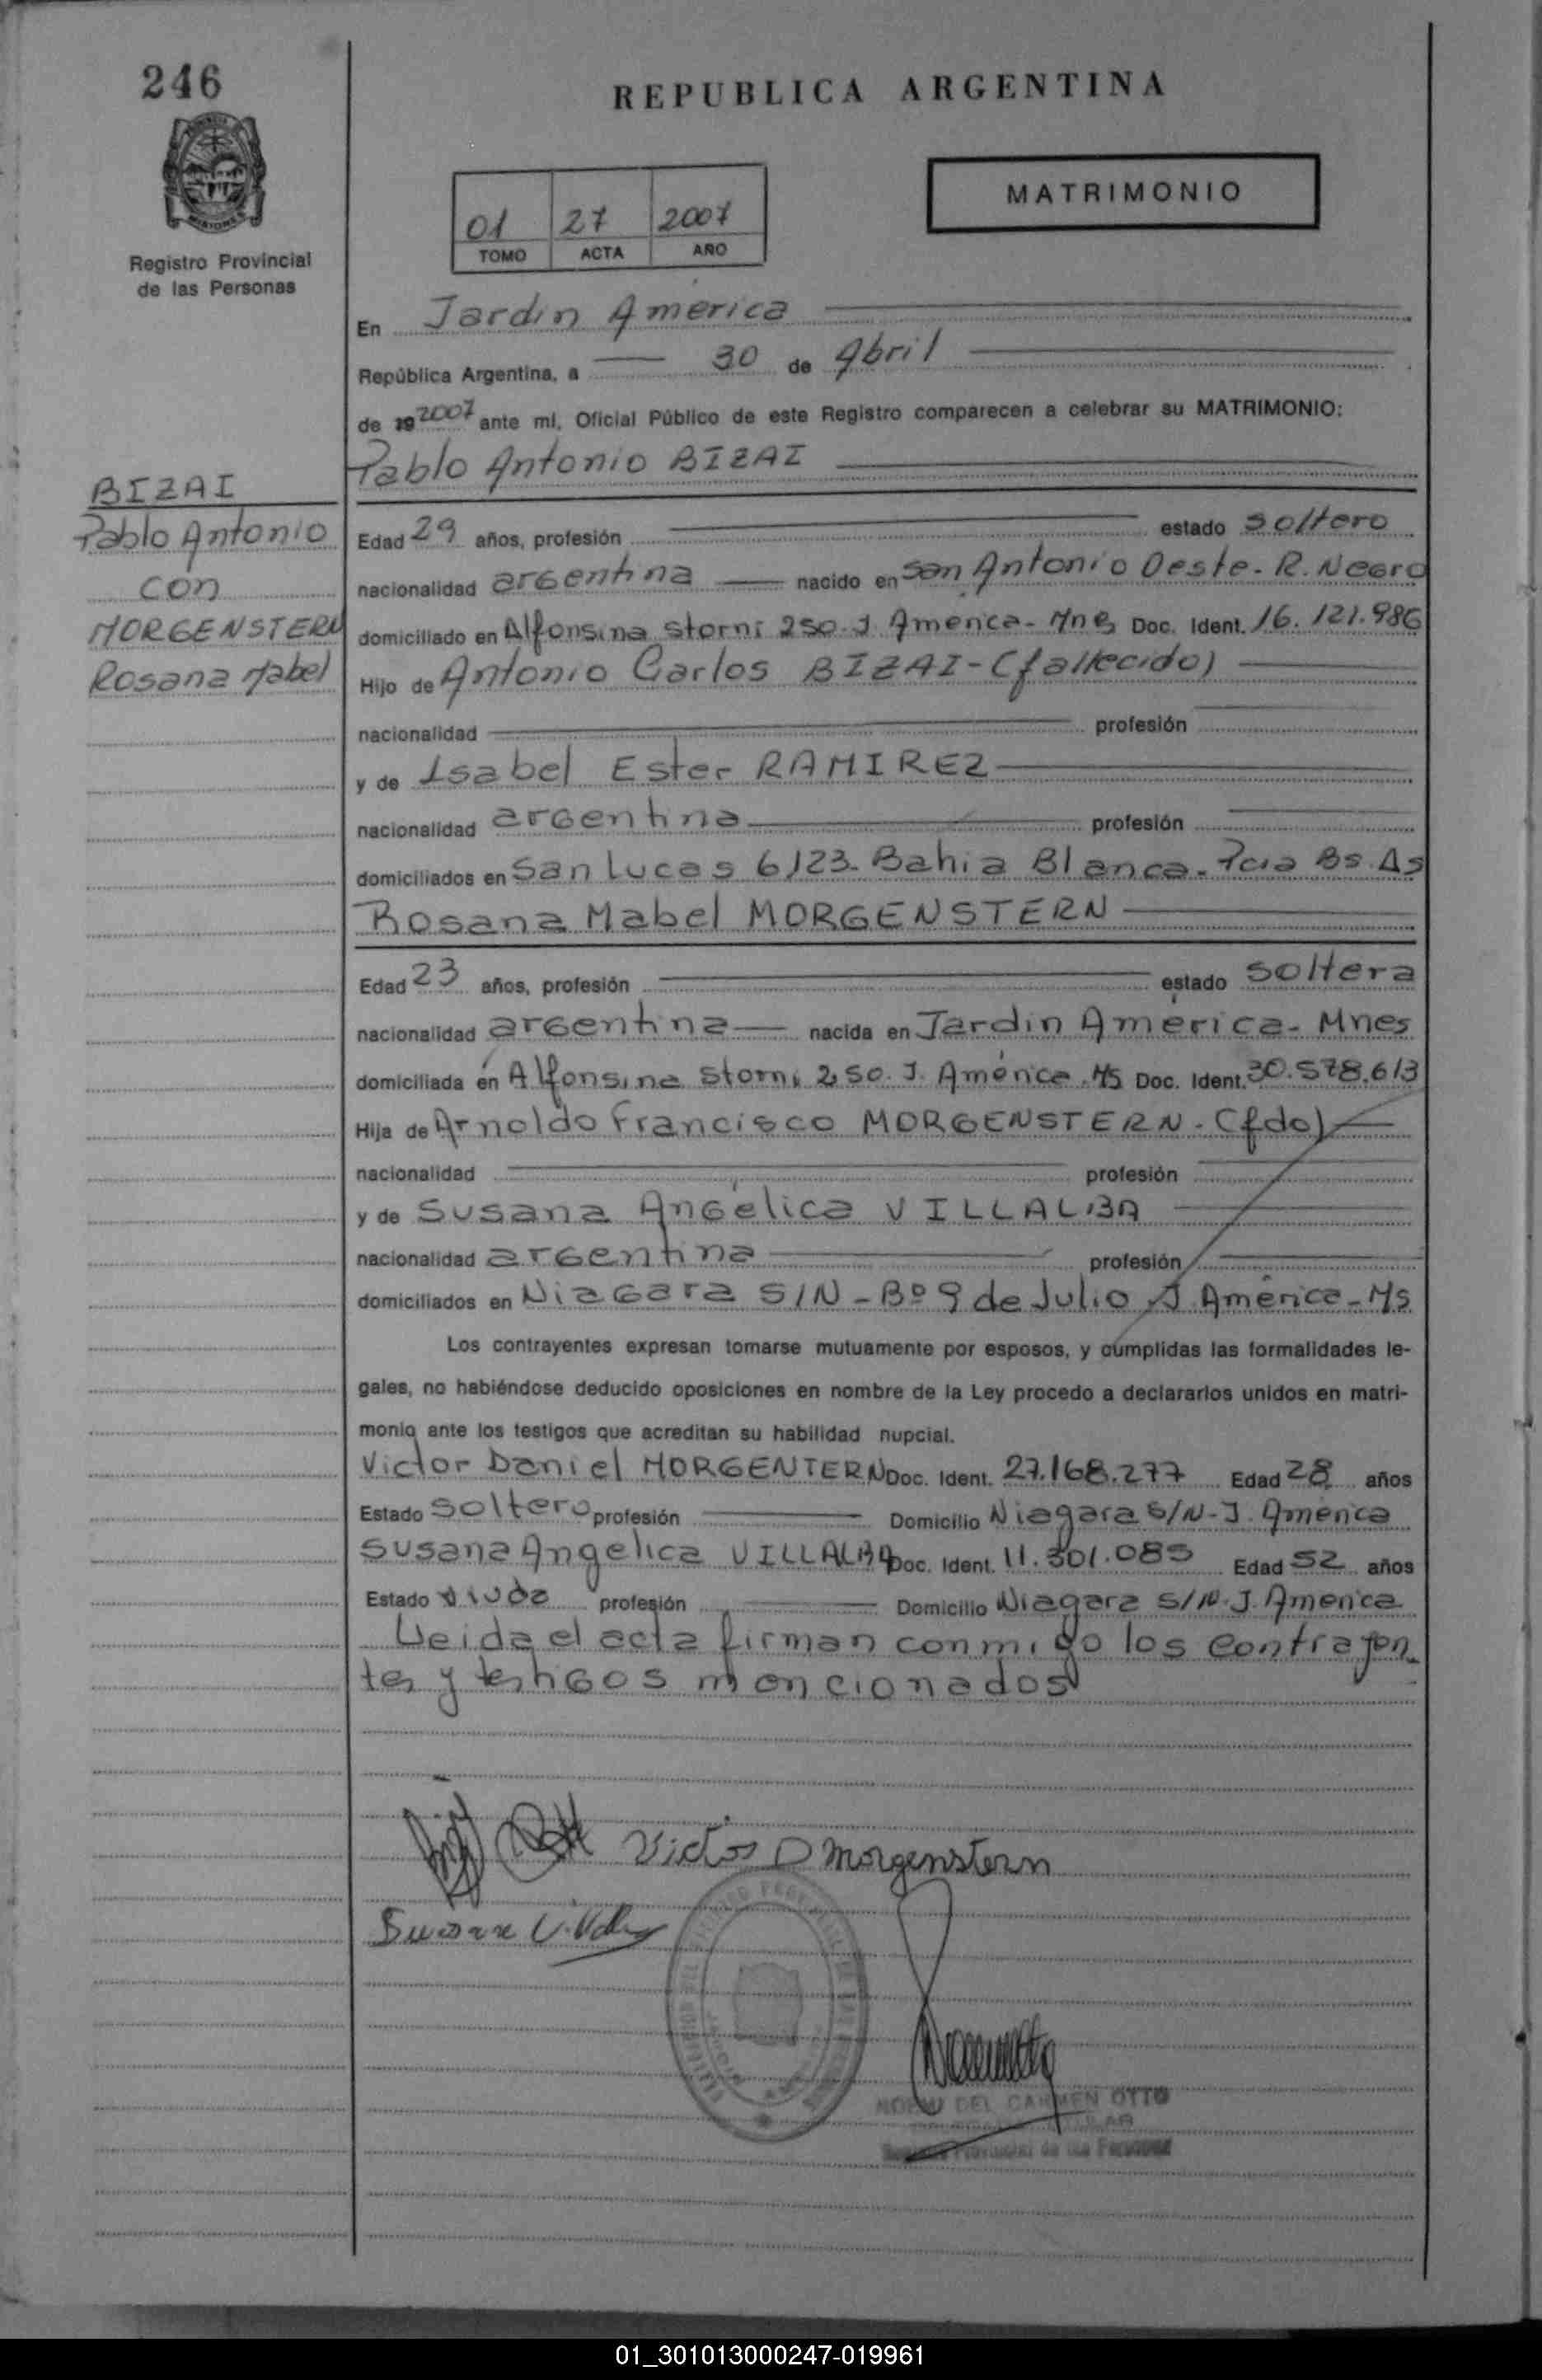 246
REPUBLICA ARGENTINA
MATRIMONIO
01 27 2007
TOMO ACTA AÑO
Registro Provincial
de las Personas
En Jardin America
República Argentina, a 30 de Abril
de 19 2007 ante mí, Oficial Público de este Registro comparecen a celebrar su MATRIMONIO:
Pablo Antonio BIZAI
BIZAI
Pablo Antonio
con
MORGENSTERN
Rosana Mabel
Edad 29 años, profesión estado soltero
nacionalidad argentina nacido en San Antonio Oeste - R. Negro
domiciliado en Alfonsina Storni 250 - J. America - Mnes Doc. Ident. 16.121.986
Hijo de Antonio Carlos BIZAI - (fallecido)
nacionalidad profesión
y de Isabel Ester RAMIREZ
nacionalidad argentina profesión
domiciliados en San Lucas 6123 - Bahia Blanca - Pcia Bs. As
Rosana Mabel MORGENSTERN
Edad 23 años, profesión estado soltera
nacionalidad argentina nacida en Jardin America - Mnes
domiciliada en Alfonsina Storni 250. J. América. Ms Doc. Ident. 30.578.613
Hija de Arnoldo Francisco MORGENSTERN - (fdo)
nacionalidad profesión
y de Susana Angélica VILLALBA
nacionalidad argentina profesión
domiciliados en Niagara S/N - Bº 9 de Julio J. América - Ms
Los contrayentes expresan tomarse mutuamente por esposos, y cumplidas las formalidades le-
gales, no habiéndose deducido oposiciones en nombre de la Ley procedo a declararlos unidos en matri-
monio ante los testigos que acreditan su habilidad nupcial.
Victor Daniel MORGENTERN Doc. Ident. 27.168.277 Edad 28 años
Estado soltero profesión Domicilio Niagara S/N - J. América
Susana Angelica VILLALBA Doc. Ident. 11.301.085 Edad 52 años
Estado viuda profesión Domicilio Niagara S/N. J. America
Leida el acta firman conmigo los contrayen
tes y testigos mencionados
Victor D Morgenstern
Susana
DEL CARMEN OTTO
Provincial de las Personas
01_301013000247-019961